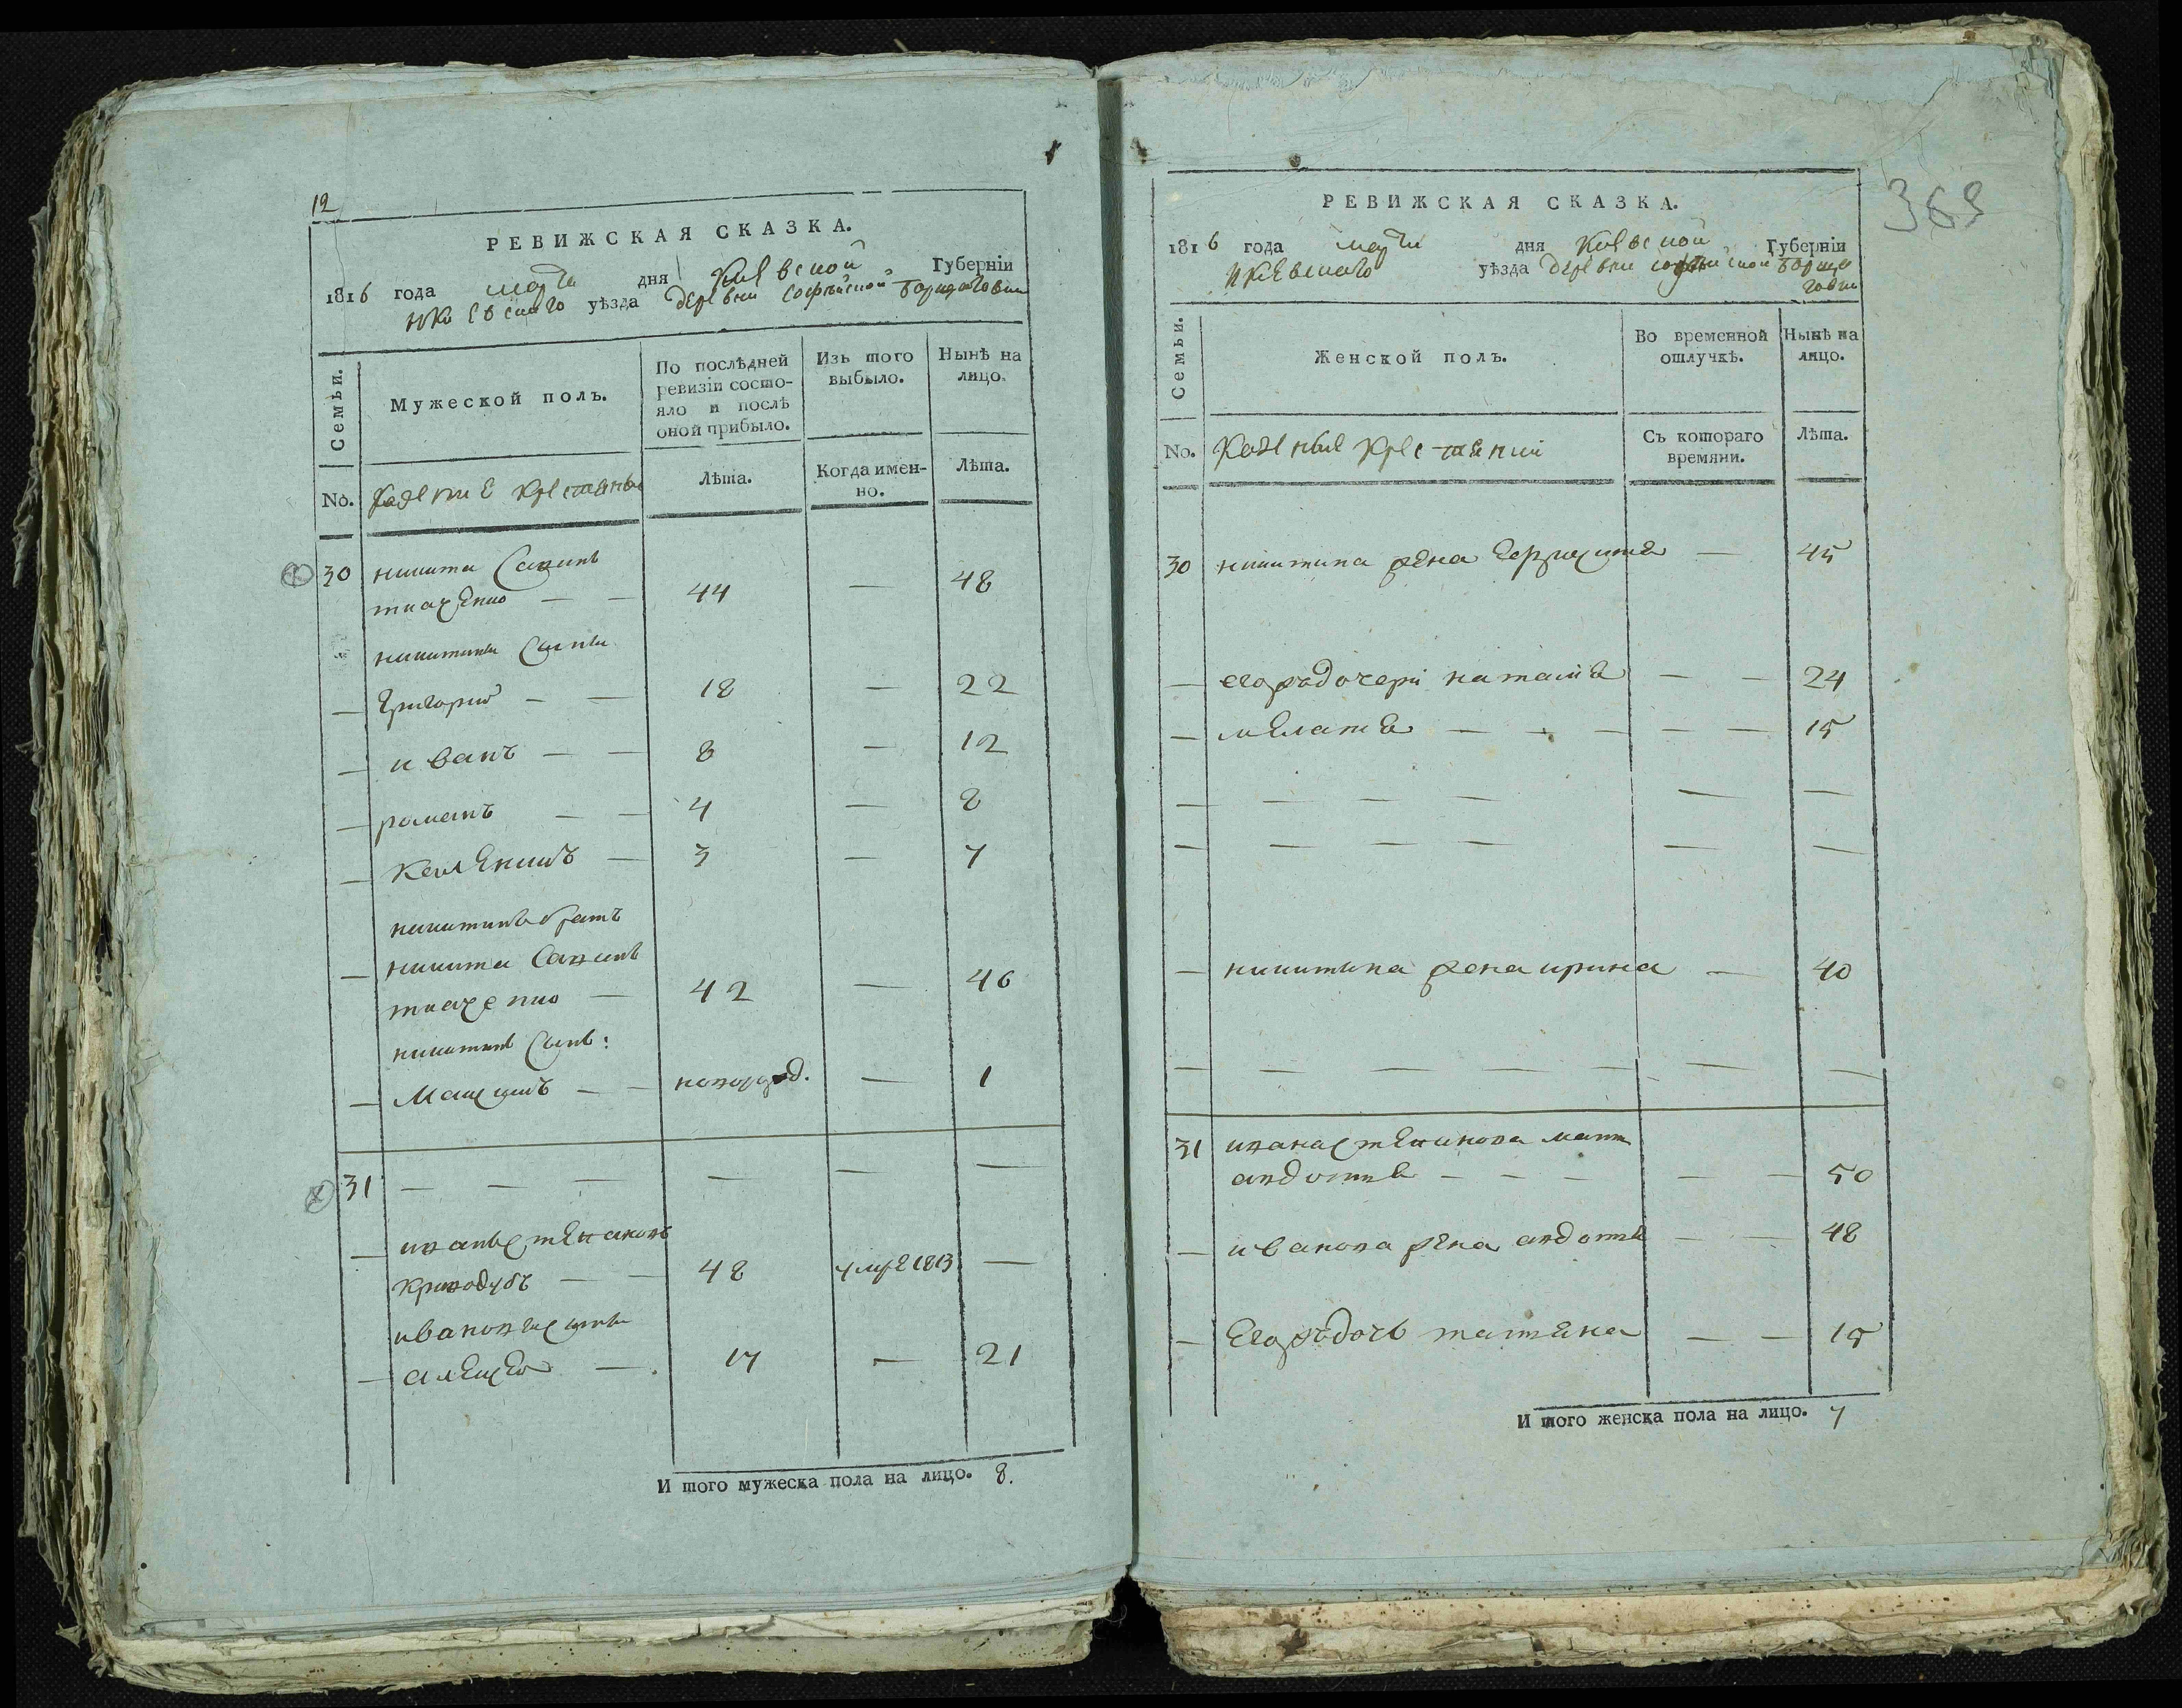 12
РЕВИЖСКАЯ СКАЗКА.
1816 года марта дня Киевской Губерніи
и Киевскаго уѣзда деревни Софѣиской Борщаговки
Семьи.
Мужеской полъ.
По послѣдней ревизіи состояло и послѣ оной прибыло.
Изъ того выбыло.
Нынѣ на лицо.
No.
Казение крестьяны
Лѣта.
Когда именно.
Лѣта.
30 никита Савинъ
ткаченко — — 44 — 48
никитины сыны
— Григорий — — 18 — 22
— иванъ — — 8 — 12
— романъ — — 4 — 8
— — 3 — 7
никитинъ братъ
— никита Савинъ
ткаченко — 42 — 46
никитинъ сынъ:
— Максимъ — — новорожд. — 1
31 — — — — — —
— иванъ степановъ
криводубъ — — 48 умре 1813 —
ивановъ сынъ
— алексей — 17 — 21
И того мужеска пола на лицо. 8.
369
РЕВИЖСКАЯ СКАЗКА.
1816 года марта дня Киевской Губерніи
и Киевскаго уѣзда деревни Софѣиской Борща
говки
Семьи.
Женской полъ.
Во временной отлучкѣ.
Нынѣ на лицо.
No.
Казеные крестьянки
Съ котораго времяни.
Лѣта.
30 никитина жена — 45
— егожъ дочери наталия — — 24
— мелания — — — — — 15
— — — — — —
— — — — — —
— никитина жена ирина — 40
— — — — — — —
31 ивана степанова мать
авдотия — — — — — 50
— иванова жена авдотия — — 48
— Егожъ дочь татяна — — 15
И того женска пола на лицо. 7